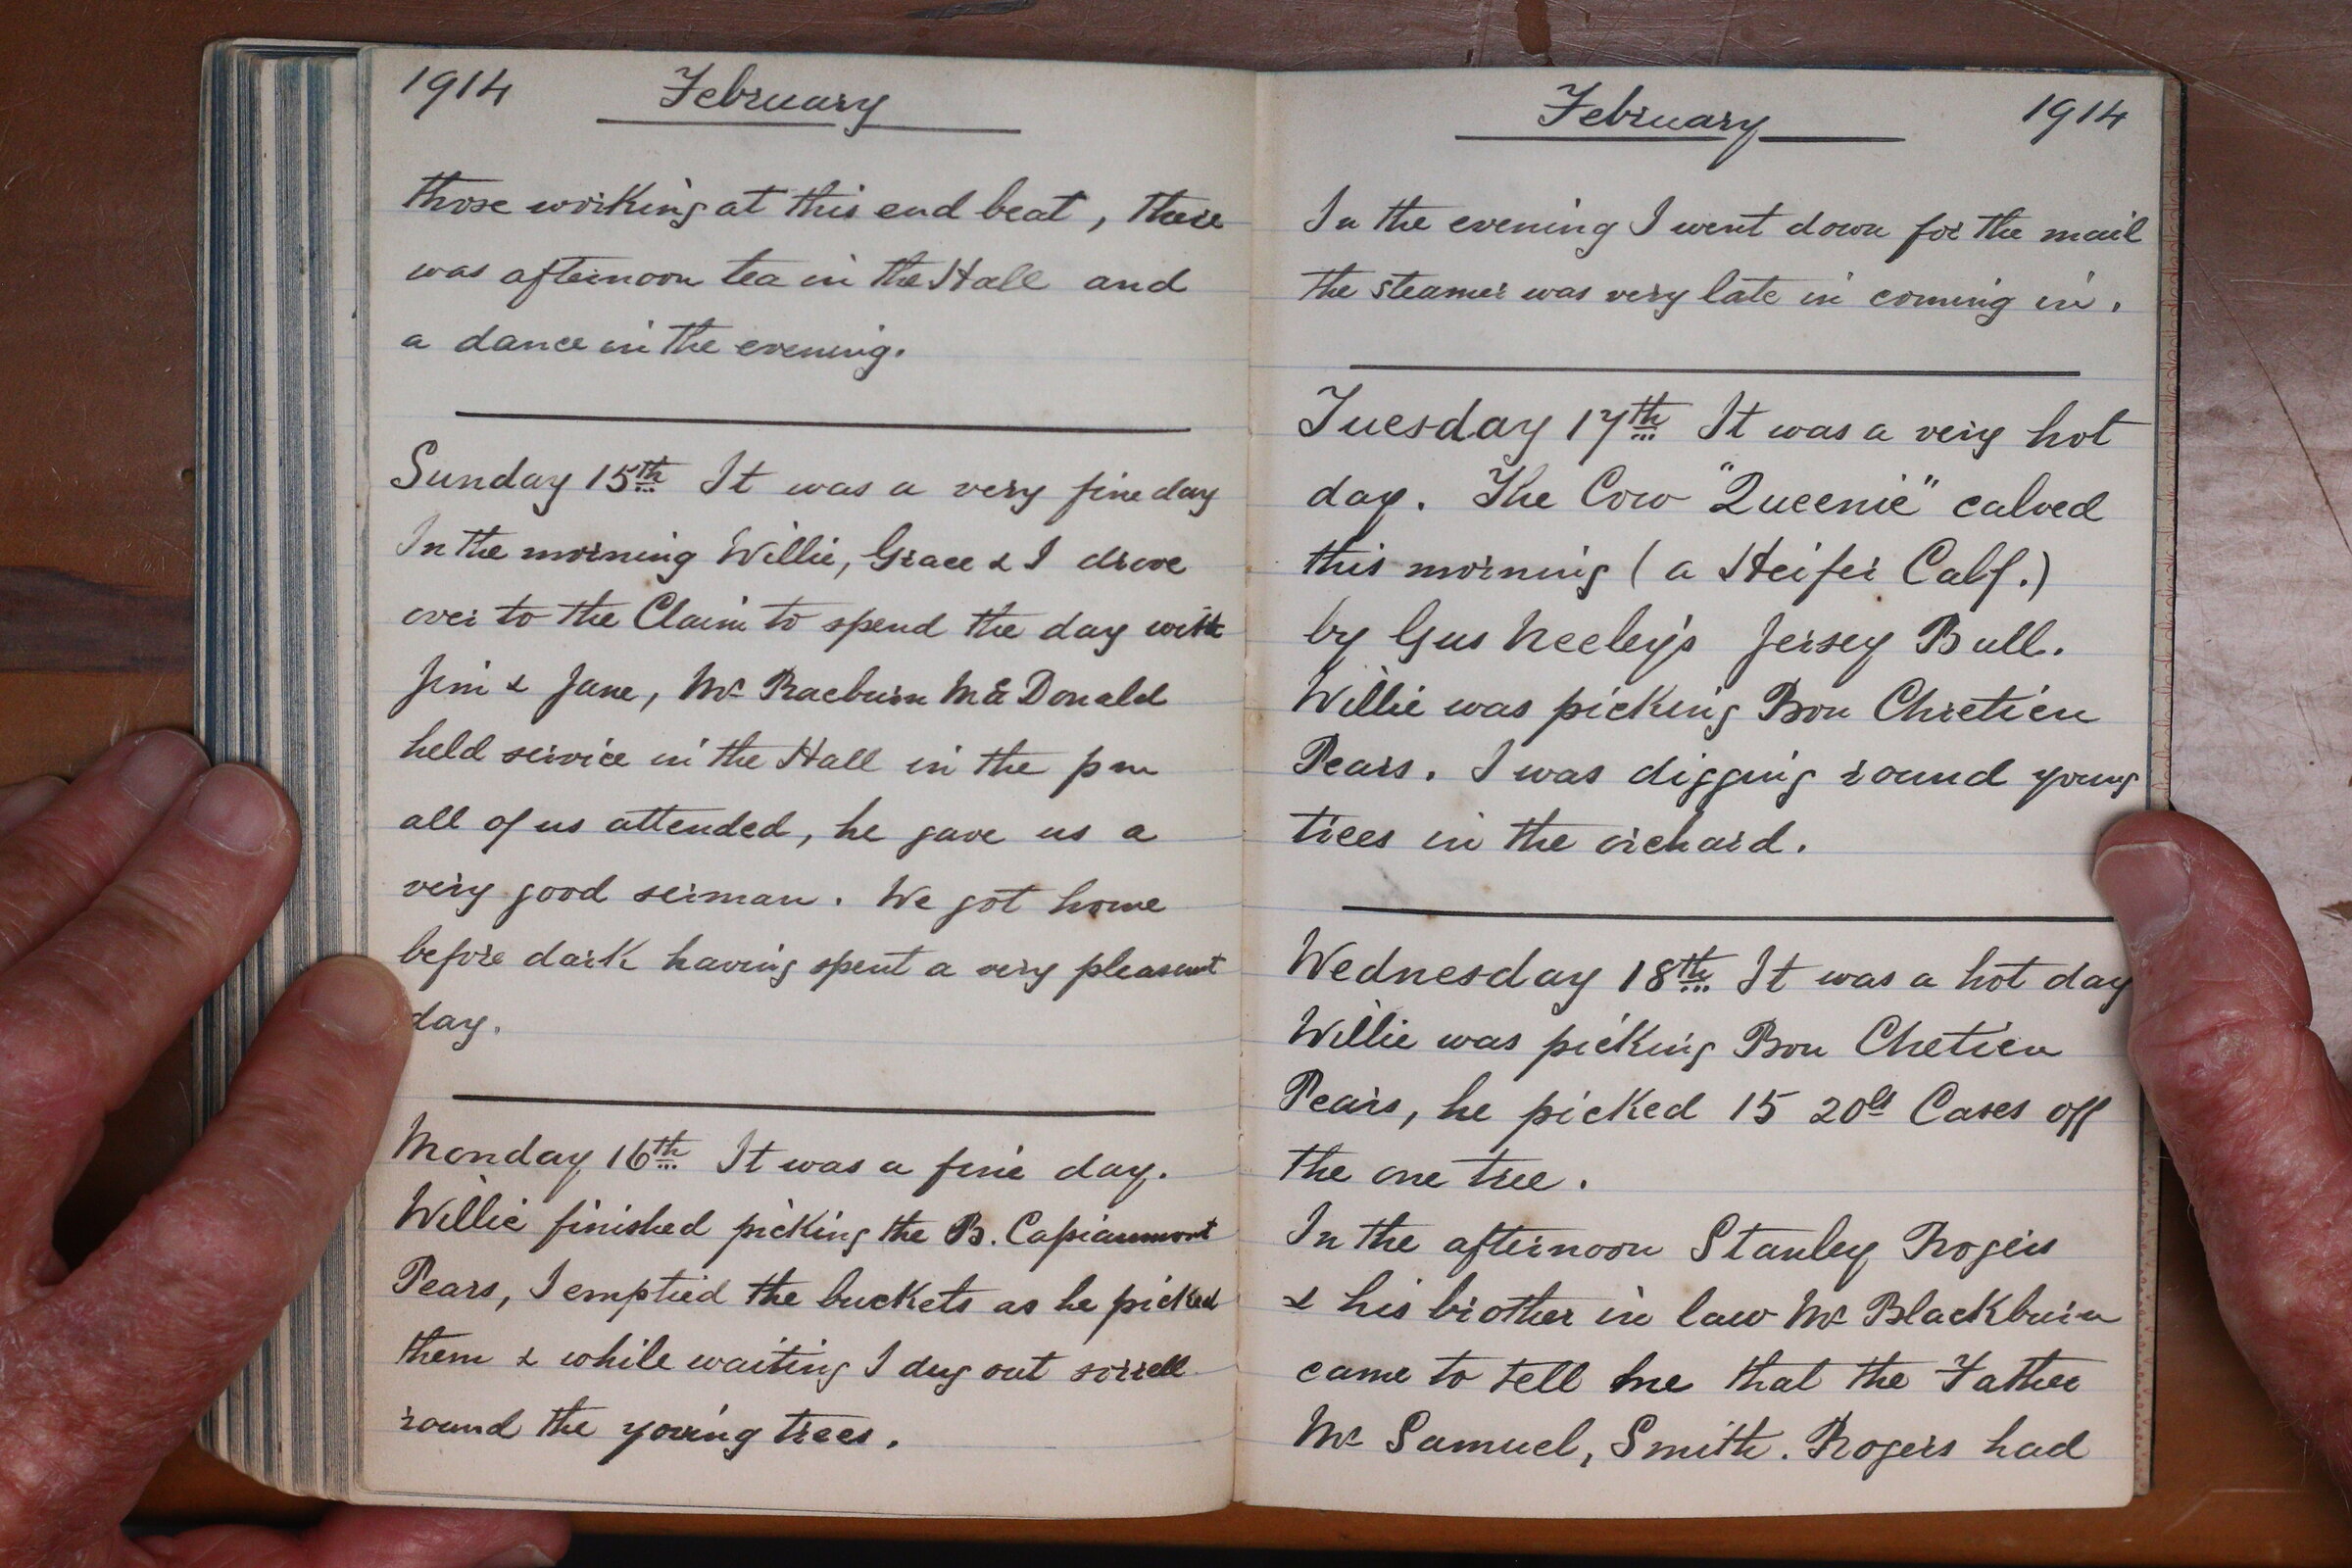 1914 February
those working at this end beat, there
was afternoon tea in the Hall and
a dance in the evening.
Sunday 15th It was a very fine day
In the morning Willie, Grace & I drove
over to the Claim to spend the day with
Jim & Jane, Mr Raeburn McDonald
held service in the Hall in the pm
all of us attended, he gave us a
very good serman. We got home
before dark having spent a very pleasant
day.
Monday 16th It was a fine day.
Willie finished picking the B. Capiaumont
Pears, I emptied the buckets as he picked
them & while waiting I dug out sorrell
round the young trees.
February 1914
In the evening I went down for the mail
the steamer was very late in coming in.
Tuesday 17th It was a very hot
day. The Cow "Queenie" calved
this morning (a Heifer Calf.)
by Gus Neeley's Jersey Bull.
Willie was picking Bon Chretien
Pears. I was digging round young
trees in the orchard.
Wednesday 18th It was a hot day
Willie was picking Bon Chetien
Pears, he picked 15 20lb Cases off
the one tree.
In the afternoon Stanley Rogers
& his brother in law Mr Blackburn
came to tell me that the Father
Mr Samuel, Smith. Rogers had